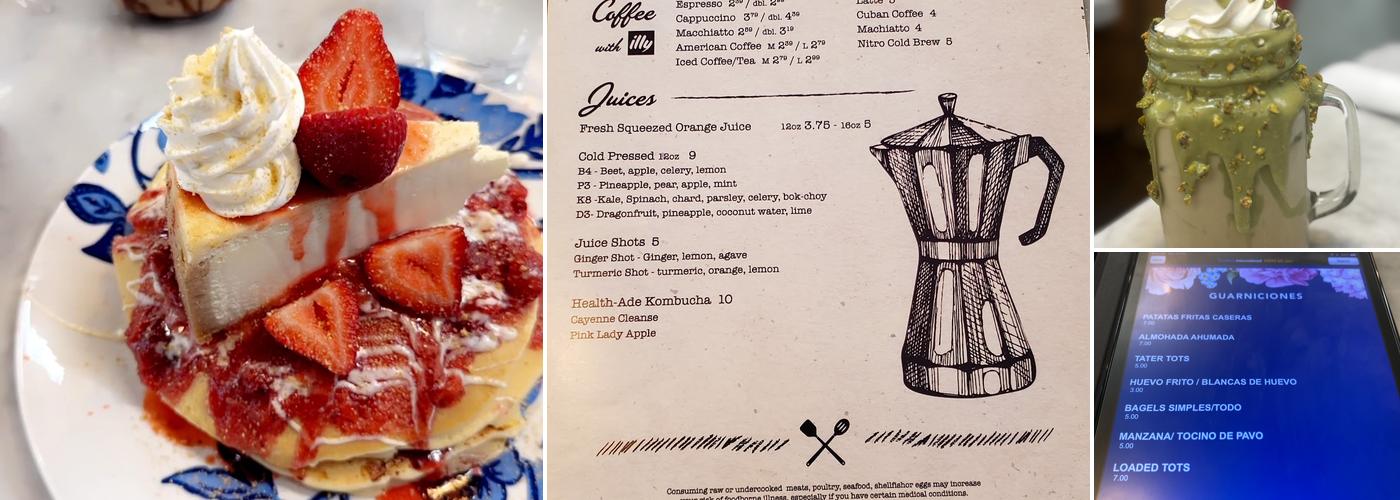 Coffee
with illy
Espresso 2⁵⁹ / dbl. 2⁹⁹
Cappuccino 3⁷⁹ / dbl. 4³⁹
Macchiato 2⁸⁹ / dbl. 3¹⁹
American Coffee M 2³⁹ / L 2⁷⁹
Iced Coffee/Tea M 2⁷⁹ / L 2⁹⁹
Latte 5
Cuban Coffee 4
Machiatto 4
Nitro Cold Brew 5
Juices
Fresh Squeezed Orange Juice 12oz 3.75 - 16oz 5
Cold Pressed 12oz 9
B4 - Beet, apple, celery, lemon
P3 - Pineapple, pear, apple, mint
K8 -Kale, Spinach, chard, parsley, celery, bok-choy
D3- Dragonfruit, pineapple, coconut water, lime
Juice Shots 5
Ginger Shot - Ginger, lemon, agave
Turmeric Shot - turmeric, orange, lemon
Health-Ade Kombucha 10
Cayenne Cleanse
Pink Lady Apple
Consuming raw or undercooked meats, poultry, seafood, shellfishor eggs may increase
your risk of foodborne illness, especially if you have certain medical conditions.
GUARNICIONES
PATATAS FRITAS CASERAS
7.00
ALMOHADA AHUMADA
7.00
TATER TOTS
5.00
HUEVO FRITO / BLANCAS DE HUEVO
3.00
BAGELS SIMPLES/TODO
5.00
MANZANA/ TOCINO DE PAVO
5.00
LOADED TOTS
7.00